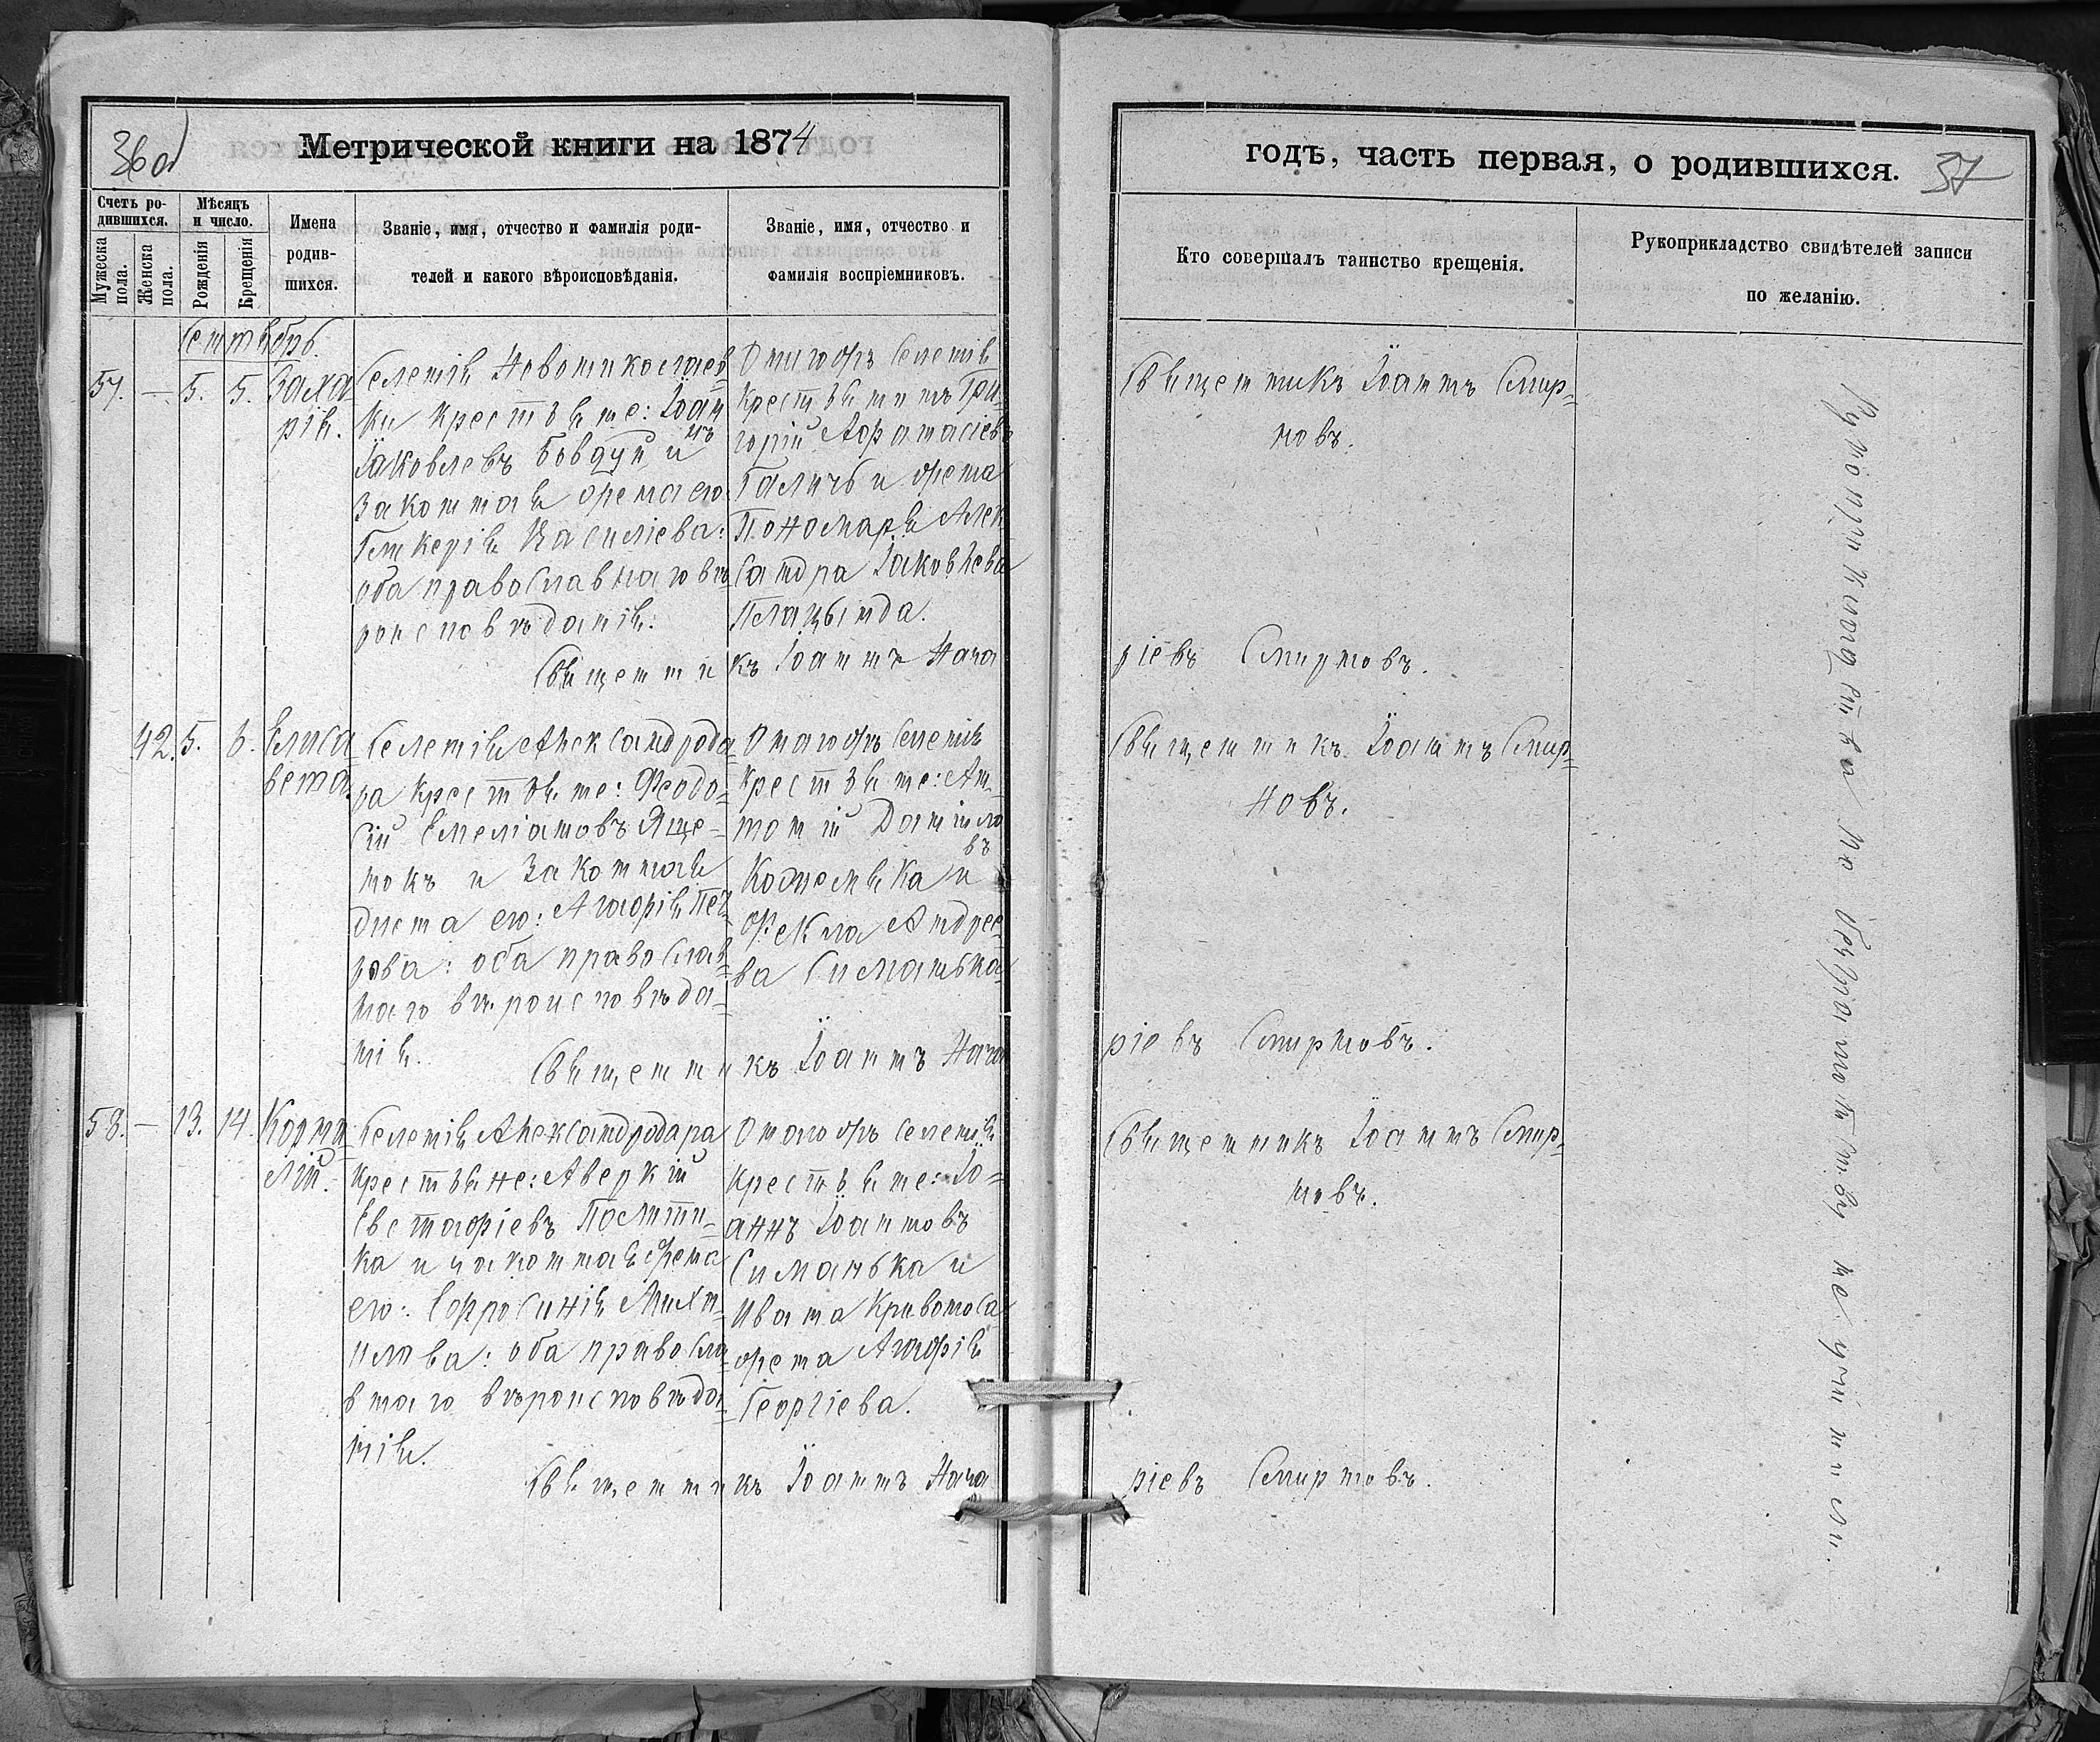 36об
Метрической книги на 1874
Счетъ ро-
дившихся.
Мужеска
пола.
Женска
пола.
Мѣсяцъ
и число.
Рожденія
Крещенія
Имена
родив-
шихся.
Званіе, имя, отчество и фамилія роди-
телей и какого вѣроисповѣданія.
Званіе, имя, отчество и
фамилія воспріемниковъ.
годъ, часть первая, о родившихся. 37
Кто совершалъ таинство крещенія.
Рукоприкладство свидѣтелей записи
по желанію.
Сентябрь.
57. — 5. 5. Заха
рія.
Селенія Новониколаев
ки крестьяне: Іоан
нъ
Іаковлевъ Бовдуй и
законная жена его:
Гликерія Василіева:
оба православнаго вѣ
роисповѣданія:
Тогожъ селенія
крестьянинъ Гри-
горій Аѳанасіевъ
Галичь и жена
Пономаря Алек
сандра Іаковлева
Плацында.
Священникъ Іоаннъ Смир-
новъ.
Священникъ Іоаннъ Наза
ріевъ Смирновъ.
42. 5. 6. Елиса
вета.
Селенія Александрода
ра крестьяне: Ѳеодо-
сій Емеліановъ Яще-
нокъ и законная
жена его: Агафія Пет
рова: оба православ
наго вѣроисповѣда-
нія.
Тогожъ селенія
крестьяне: Ан-
тоній Даніило
въ
Кожемяка и
Ѳекла Андрее-
ва Симанька
Священникъ Іоаннъ Смир-
новъ.
Священникъ Іоаннъ Наза
ріевъ Смирновъ.
58. — 13. 14. Корни
лій.
Селенія Александродара
крестьяне: Аверкій
Евстафіевъ
ка и законная жена
его: Евфросинія Миха-
илова: оба правосла
внаго вѣроисповѣда-
нія.
Тогожъ селенія
крестьяне: Іо-
аннъ Іоанновъ
Симанька и
Ивана Кривоноса
жена Агафія
Георгіева.
Священникъ Іоаннъ Смир-
новъ.
Священникъ Іоаннъ Наза
ріевъ Смирновъ.
Рукоприкладства по безграмотству не учинили.